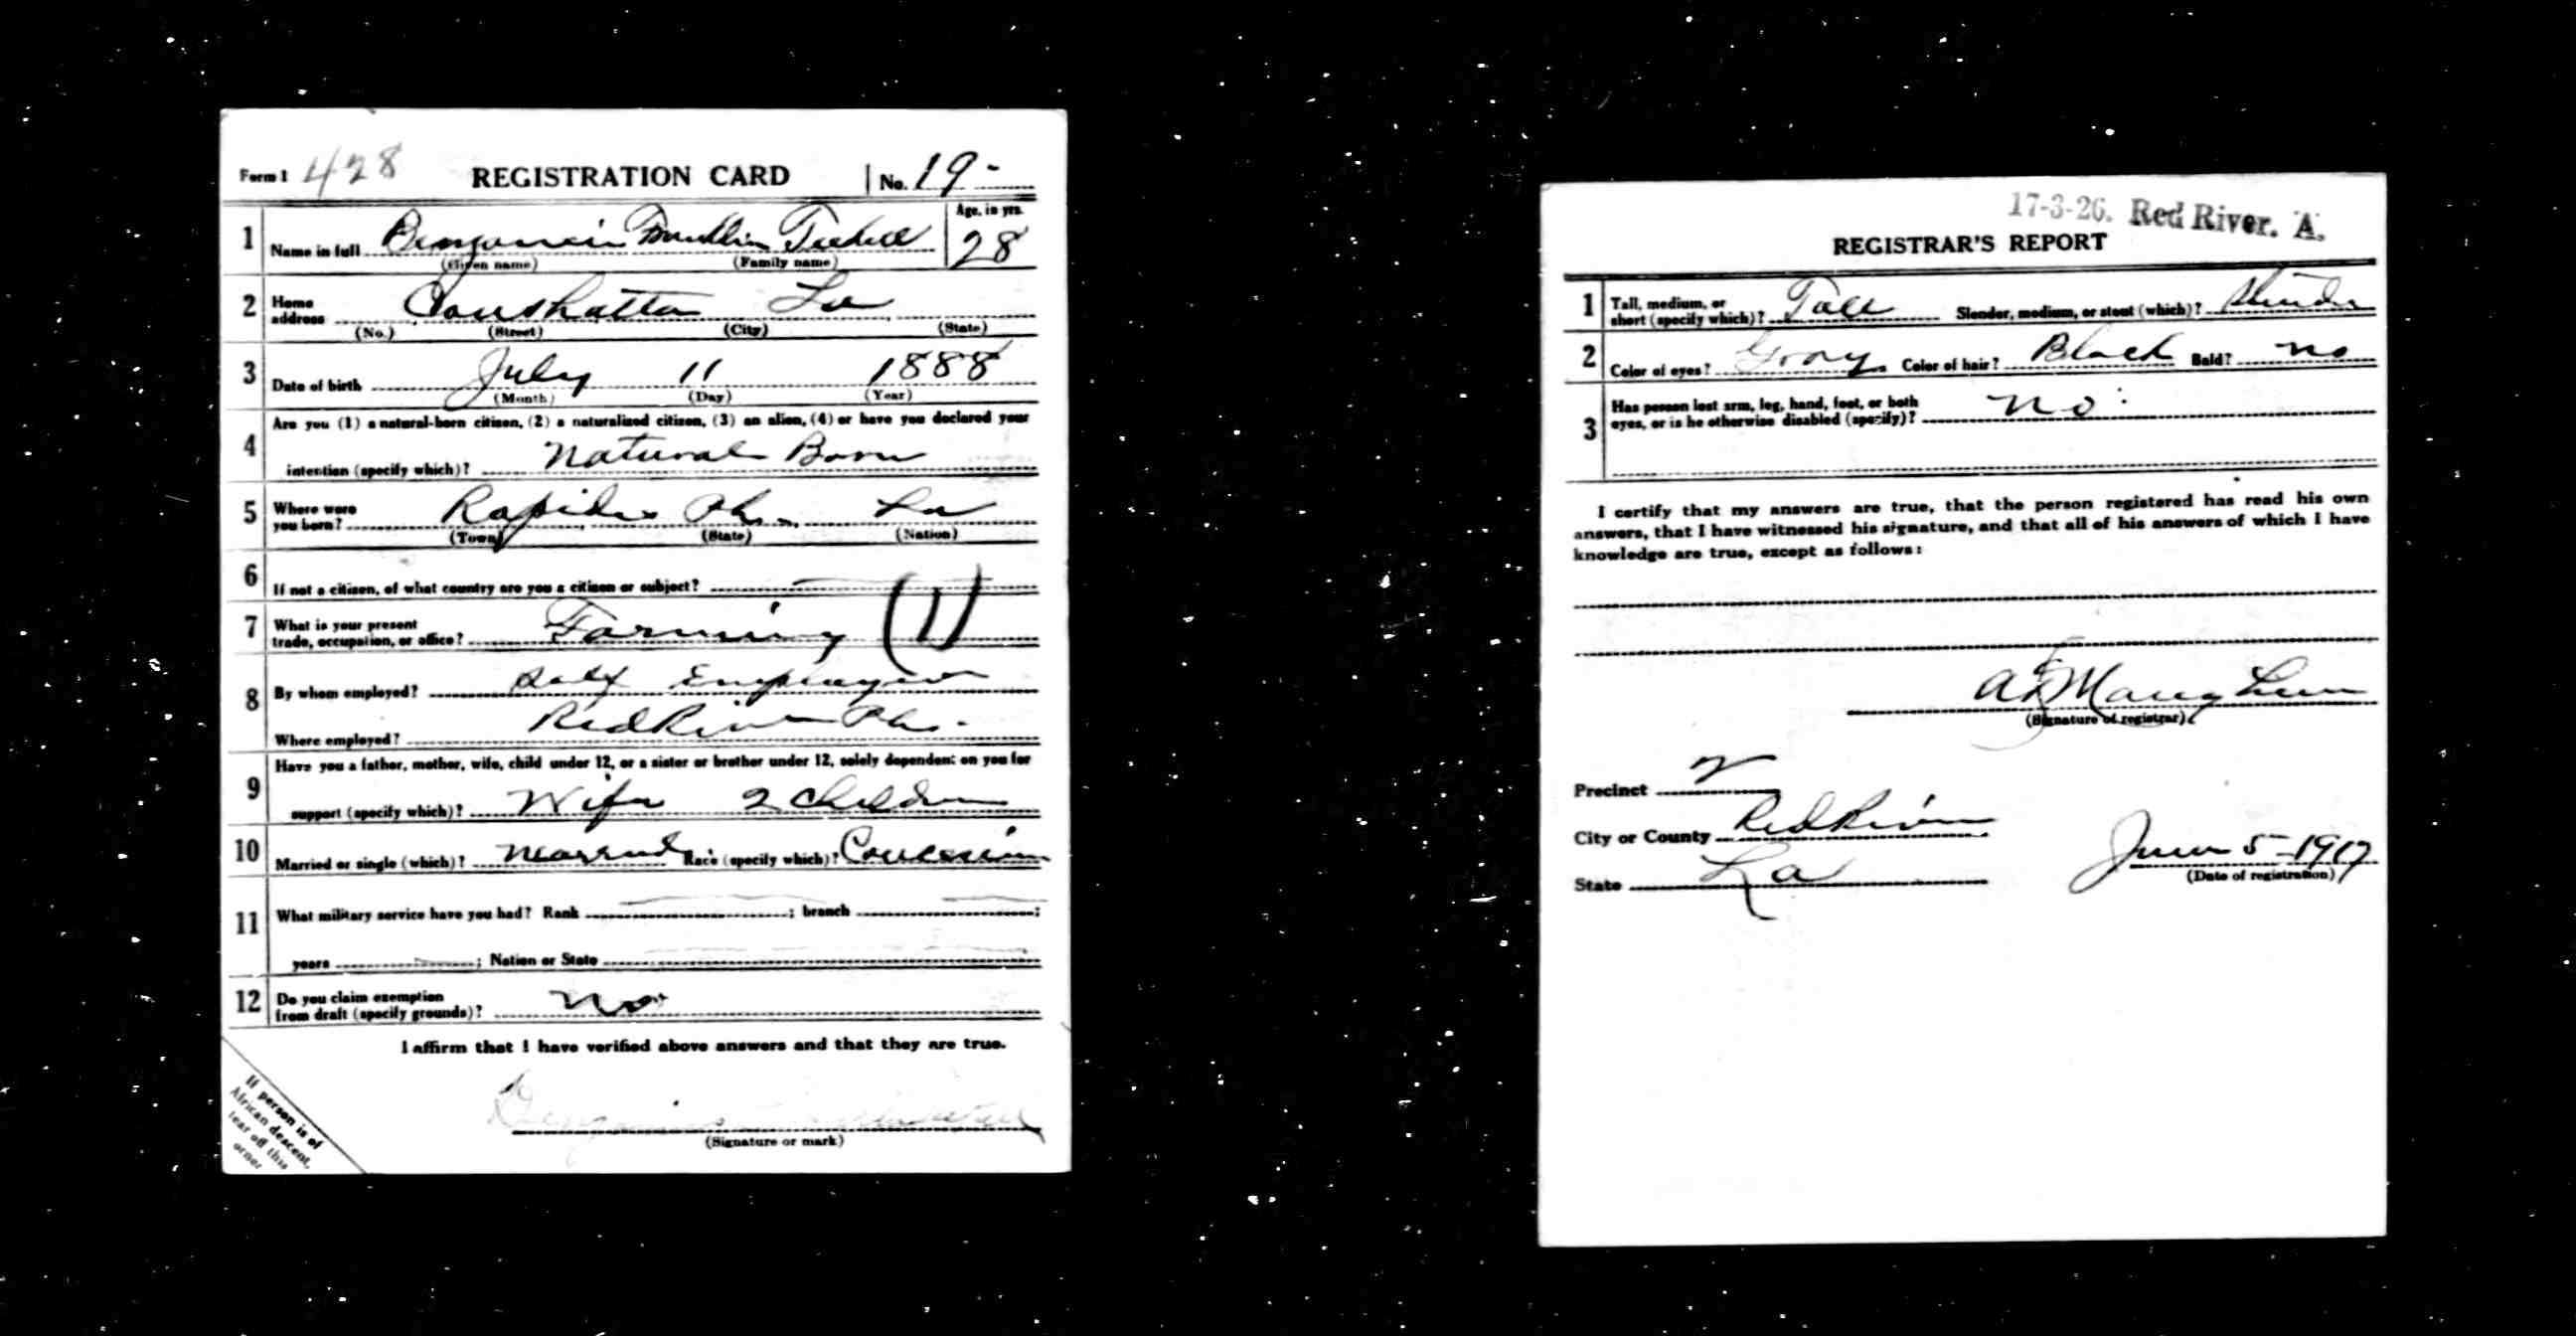 Form 1 428 REGISTRATION CARD No. 19-
1 Name in full Benjamin Franklin Age, in yrs. 28
(Given name) (Family name)
2 Home address Coushatta La
(No.) (Street) (City) (State)
3 Date of birth July 11 1888
(Month) (Day) (Year)
4 Are you (1) a natural-born citizen, (2) a naturalized citizen, (3) an alien, (4) or have you declared your
intention (specify which)? Natural Born
5 Where were you born? Rapides Ph. La
(Town) (State) (Nation)
6 If not a citizen, of what country are you a citizen or subject?
7 What is your present trade, occupation, or office? Farming (1)
8 By whom employed? Self Employed
Where employed? Red River Ph.
9 Have you a father, mother, wife, child under 12, or a sister or brother under 12, solely dependent on you for
support (specify which)? Wife 2 Children
10 Married or single (which)? Married Race (specify which)? Caucasian
11 What military service have you had? Rank ; branch ;
years ; Nation or State
12 Do you claim exemption from draft (specify grounds)? No
I affirm that I have verified above answers and that they are true.
(Signature or mark)
If person is of
African descent,
tear off this
corner
17-3-26. Red River. A.
REGISTRAR'S REPORT
1 Tall, medium, or short (specify which)? Tall Slender, medium, or stout (which)? Slender
2 Color of eyes? Gray Color of hair? Black Bald? No
3 Has person lost arm, leg, hand, foot, or both
eyes, or is he otherwise disabled (specify)? No
I certify that my answers are true, that the person registered has read his own
answers, that I have witnessed his signature, and that all of his answers of which I have
knowledge are true, except as follows:
(Signature of registrar)
Precinct 2
City or County Red River
State La June 5-1917
(Date of registration)